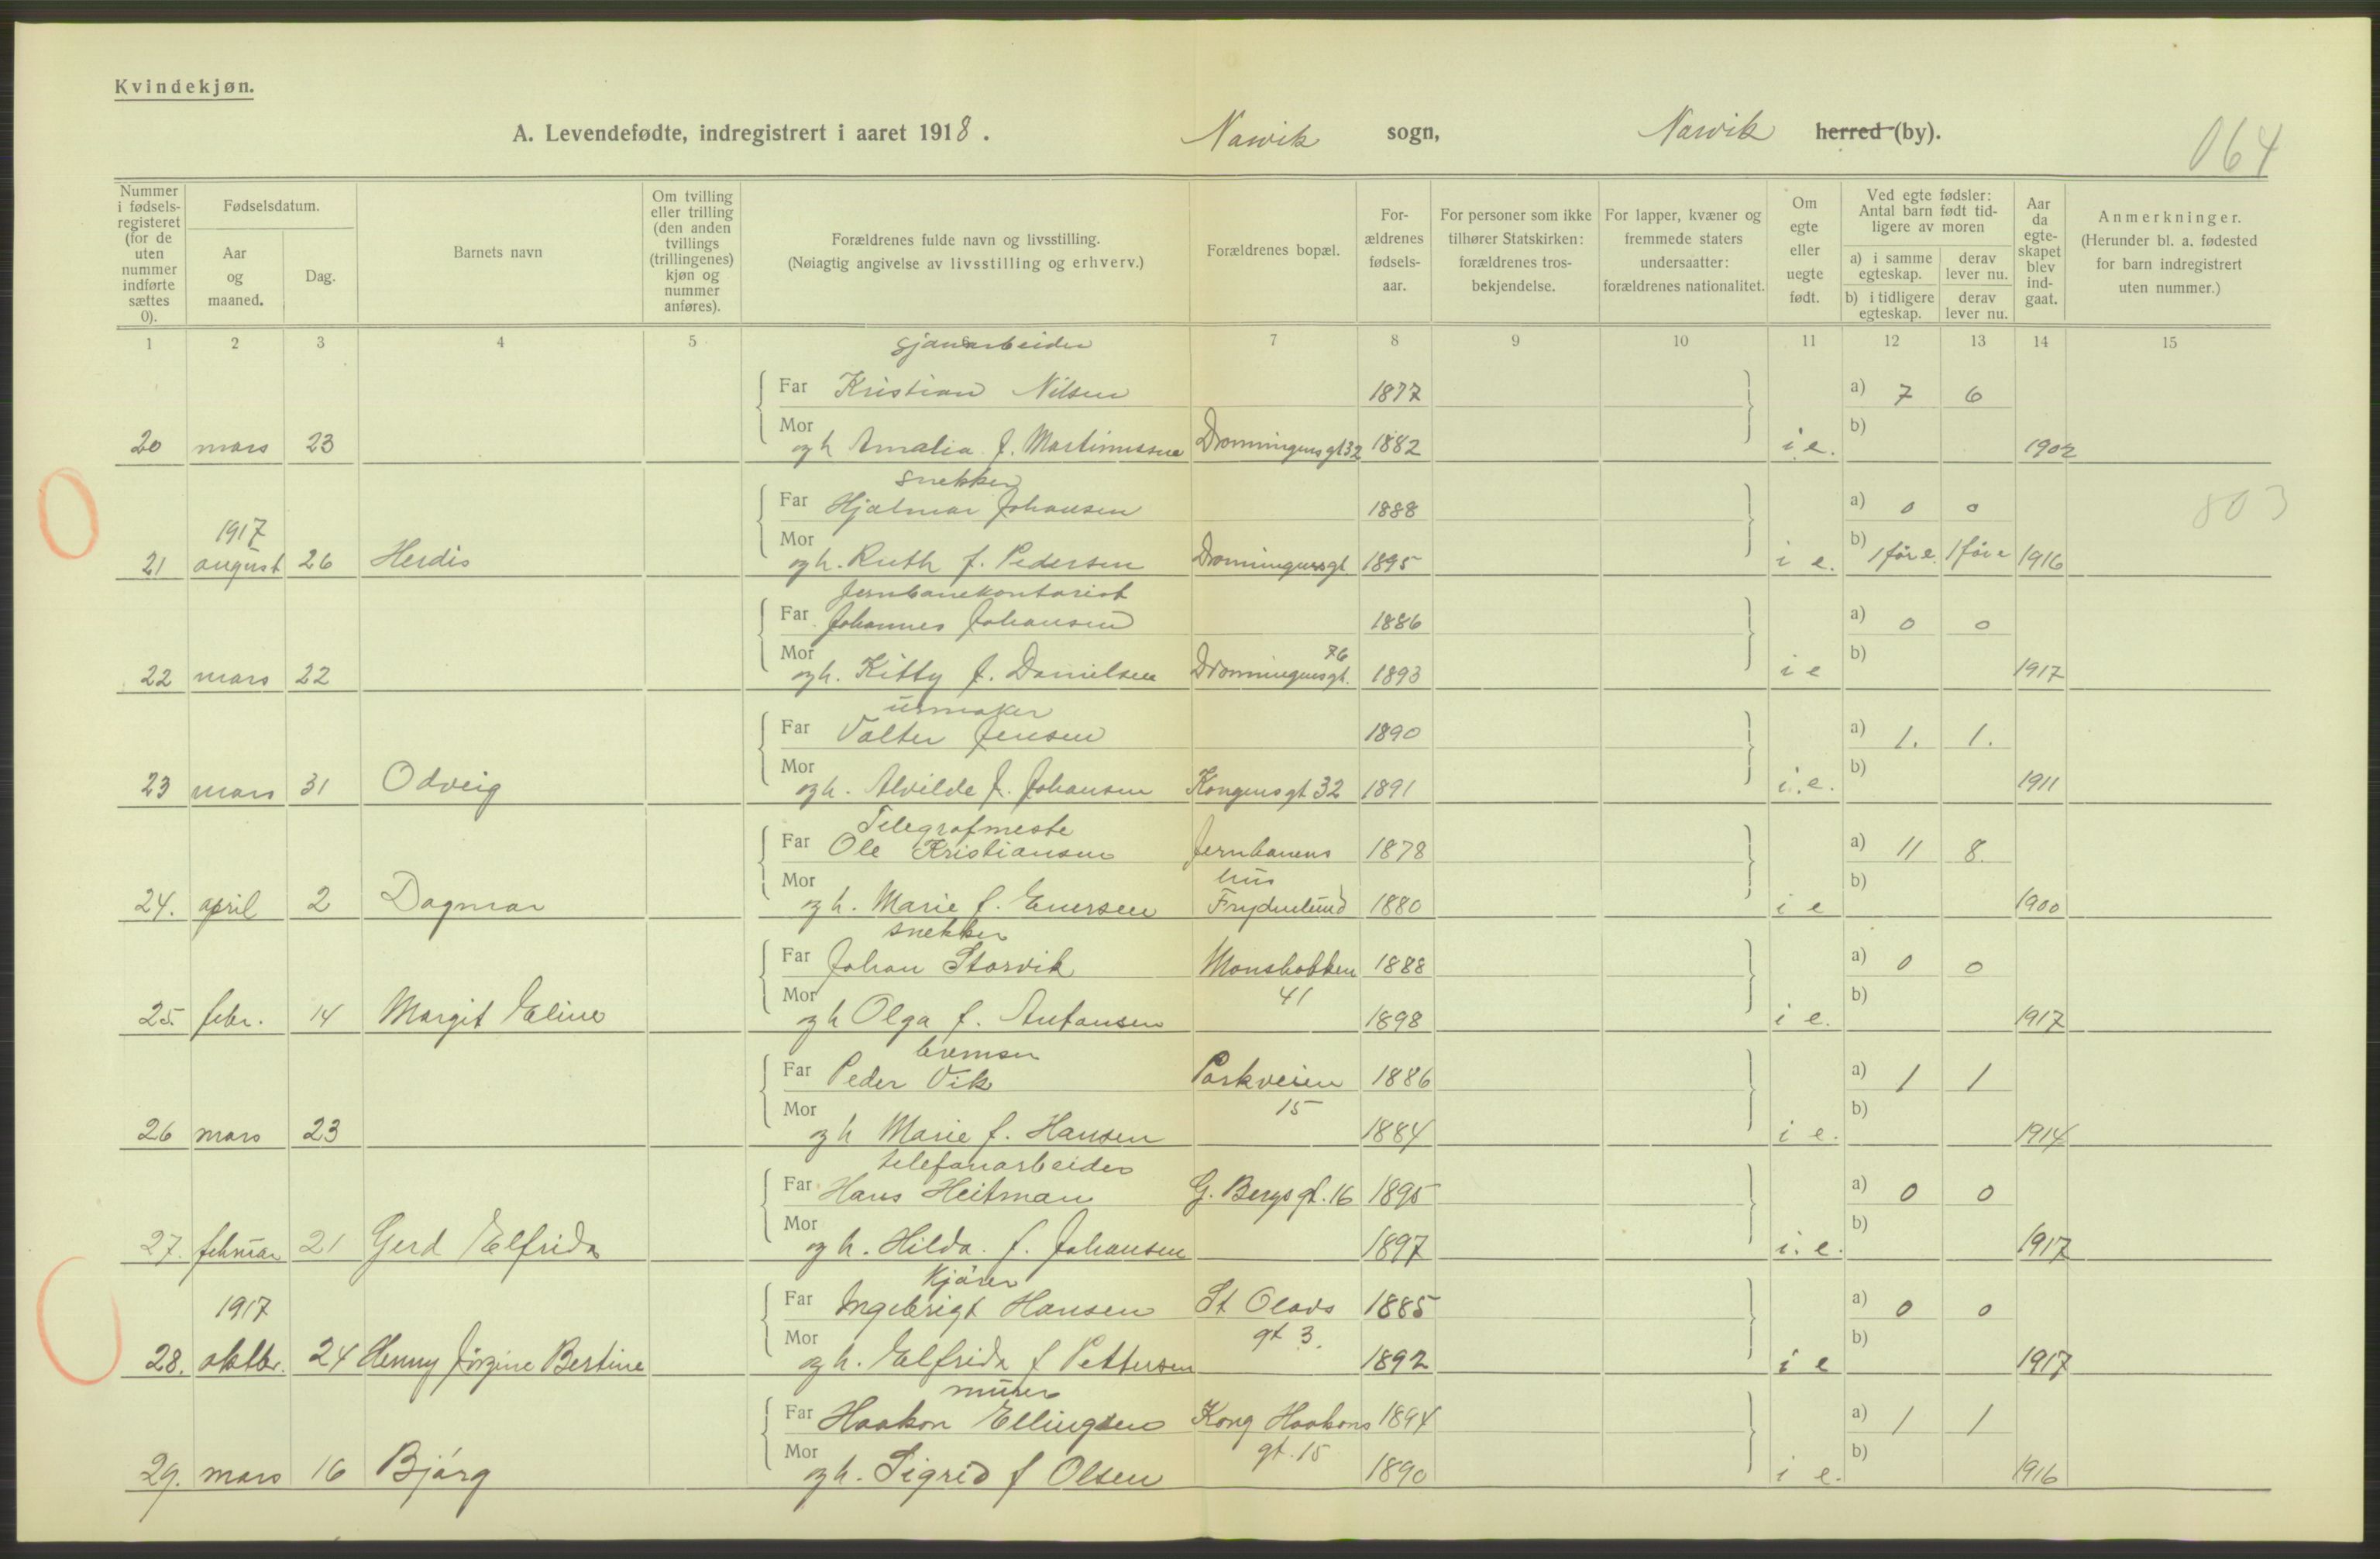 Kvindekjøn.
A. Levendefødte, indregistrert i aaret 1918. Narvik sogn, Narvik herred (by).
064
Nummer i fødselsregisteret (for de uten nummer indførte sættes 0).
Fødselsdatum.
Aar og maaned.
Dag.
Barnets navn
Om tvilling eller trilling (den anden tvillings (trillingenes) kjøn og nummer anføres).
Forældrenes fulde navn og livsstilling.
(Nøiagtig angivelse av livsstilling og erhverv.)
Forældrenes bopæl.
Forældrenes fødselsaar.
For personer som ikke tilhører Statskirken: forældrenes trosbekjendelse.
For lapper, kvæner og fremmede staters undersaatter: forældrenes nationalitet.
Om egte eller uegte født.
Ved egte fødsler: Antal barn født tidligere av moren
a) i samme egteskap. derav lever nu.
b) i tidligere egteskap. derav lever nu.
Aar da egteskapet blev indgaat.
Anmerkninger.
(Herunder bl. a. fødested for barn indregistrert uten nummer.)
1 2 3 4 5 6 7 8 9 10 11 12 13 14 15
Far Kristian Nilsen 1877 a) 7 6
Mor b)
20 mars 23 og h Amalia f. Martinussen Dronningensgt 32 1882 i e. 1902
snekker
Far Hjalmar Johansen 1888 a) 0 0 803
1917
Mor b)
21 august 26 Herdis og h. Ruth f. Pedersen Dronningensgt 1895 i e. 1 før e. 1 før e 1916
Jernbanekontorist
Far Johannes Johansen 1886 a) 0 0
Mor b)
22 mars 22 og h. Kitty f. Danielsen Dronningensgt. 76 1893 i e 1917
urmaker
Far Valter Jensen 1890 a) 1. 1.
Mor b)
23 mars 31 Odveig og h. Alvilde f. Johansen Kongensgt 32 1891 i.e. 1911
Telegrafmeste
Far Ole Kristiansen Jernbanens 1878 a) 11 8.
Mor hus b)
24. april 2 Dagmar og h. Marie f. Enersen Frydenlund 1880 i e 1900
snekker
Far Johan Storvik 1888 a) 0 0
Mor 41 b)
25. febr. 14 Margit Eline og h Olga f. Antonsen 1898 i e. 1917
bremser
Far Peder Vik Parkveien 1886 a) 1 1
Mor 15 b)
26 mars 23 og h Marie f. Hansen 1884 i e. 1914
telefonarbeider
Far Hans Heitman G. Bergs gt. 16 1895 a) 0 0
Mor b)
27. februar 21 Gerd Elfrida og h. Hilda f. Johansen 1897 i. e. 1917
Kjører
1917
Far Ingebrigt Hansen St Olavs 1885 a) 0 0
Mor gt 3. b)
28. oktbr. 24 Henny Jørgine Bertine og h. Elfrida f Pettersen 1892 i e 1917
murer
Far Haakon Ellingsen Kong Haakons 1894 a) 1 1
Mor gt. 15 b)
29. mars 16 Bjørg og h. Sigrid f Olsen 1890 i e. 1916